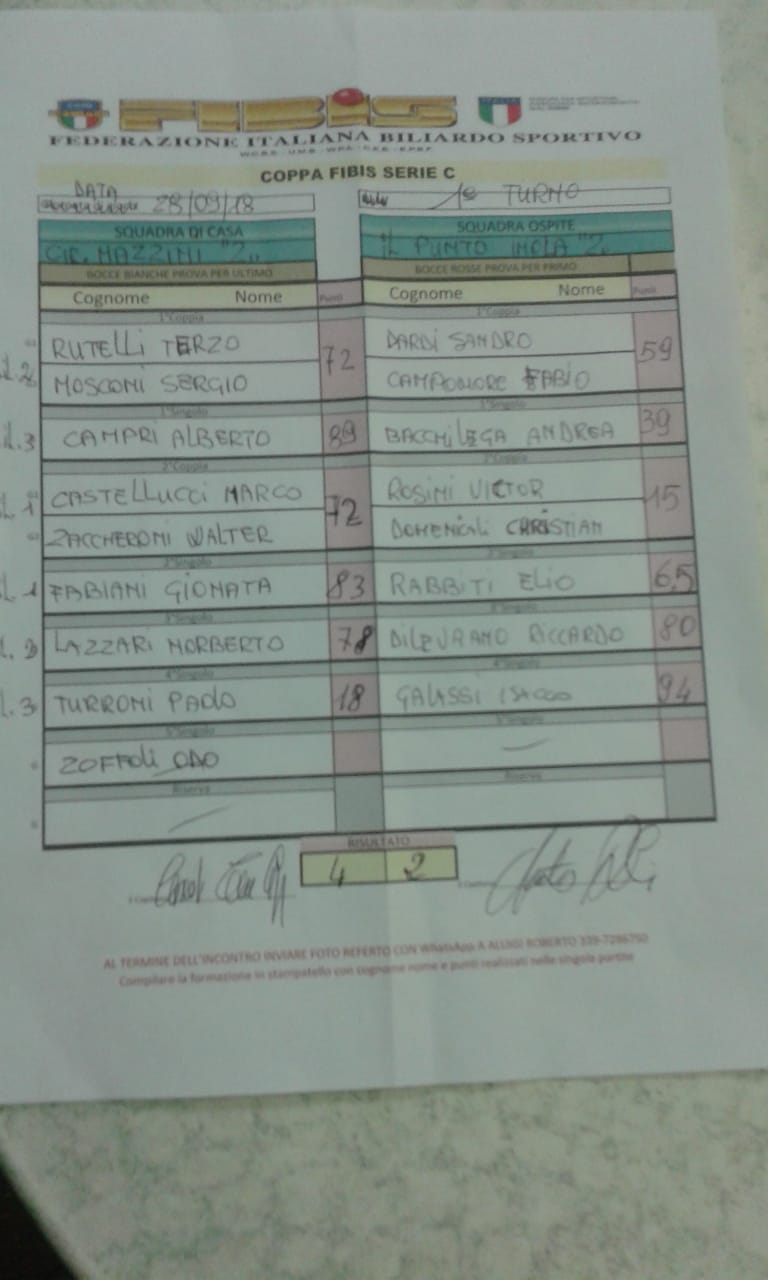 FIBIS
FEDERAZIONE ITALIANA BILIARDO SPORTIVO
COPPA FIBIS SERIE C
DATA 28/09/18 1° TURNO
SQUADRA DI CASA SQUADRA OSPITE
CIR. MAZZINI "2" IL PUNTO IMOLA "2"
BOCCE BIANCHE PROVA PER ULTIMO BOCCE ROSSE PROVA PER PRIMO
Cognome Nome Punti Cognome Nome Punti
1°Coppia 1°Coppia
RUTELLI TERZO 72 DARDI SANDRO 59
MOSCONI SERGIO CAMPOMORE FABIO
1°Singolo 1°Singolo
CAMPRI ALBERTO 89 BACCHILEGA ANDREA 39
2°Coppia 2°Coppia
CASTELLUCCI MARCO 72 ROSINI VICTOR 15
ZACCHERONI WALTER DOMENICALI CHRISTIAN
2°Singolo 2°Singolo
FABIANI GIONATA 83 RABBITI ELIO 65
3°Singolo 3°Singolo
LAZZARI NORBERTO 78 RICCARDO 80
4°Singolo 4°Singolo
TURRONI PAOLO 18 GALASSI ISACCO 94
5°Singolo 5°Singolo
ZOFFOLI ODO
Riserva Riserva
RISULTATO
4 2
AL TERMINE DELL'INCONTRO INVIARE FOTO REFERTO CON WhatsApp A ALUIGI ROBERTO 339-7286760
Compilare la formazione in stampatello con cognome nome e punti realizzati nelle singole partite